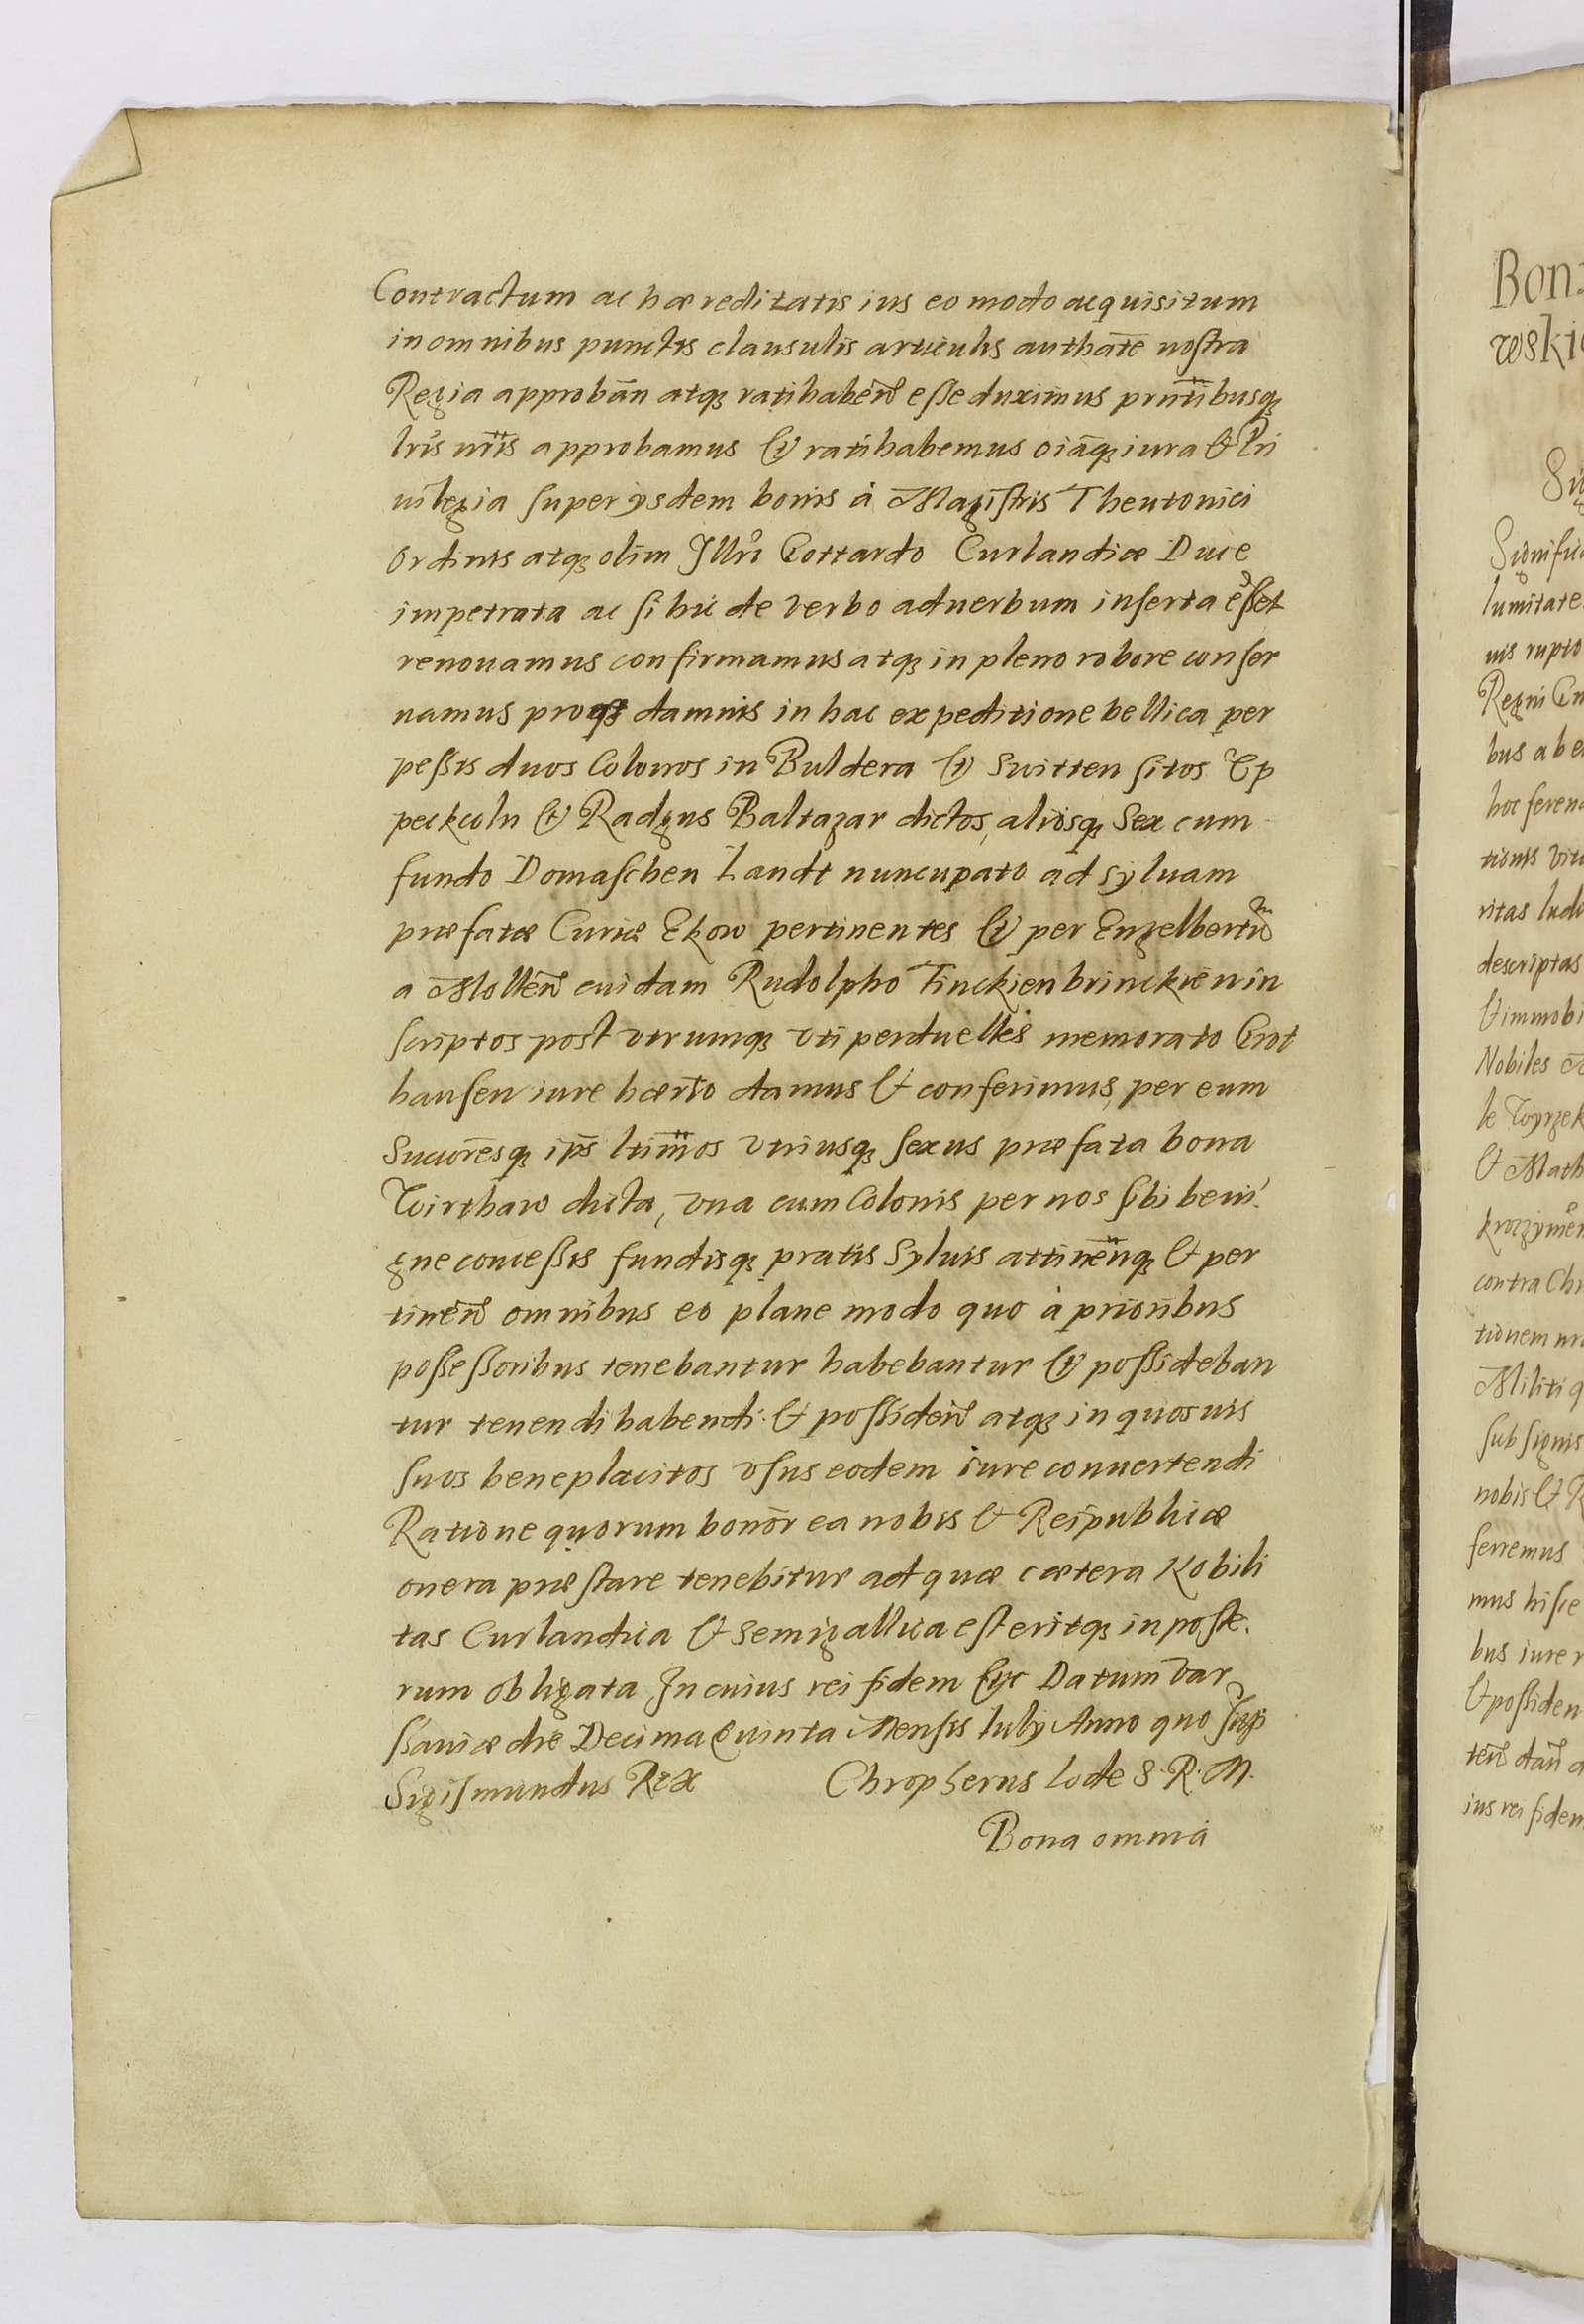 Contractum ac hæreditatis ius eo modo acquisitum
in omnibus punctis clausulis articulis authāte nostra
Regia approbān atq; ratihabēn esse duximus prñtibusq;
lrīs nrīs approbamus & ratihabemus oiāq; iura & Pri
uilegia super ijsdem bonis à Magistris Theutonici
Ordinis atq; olim Jllrī Gottardo Curlandiæ Duce
impetrata ac si hic de verbo aduerbum inserta esset
renouamus confirmamus atq; in pleno robore conser
uamus proq; damnis in hac expeditione bellica per
pessis duos Colonos in Buldera & Switten sitos Up
peckcoln & Radgus Baltazar dictos, aliosq; Sex cum
fundo Domaschen Landt nuncupato ad syluam
præfatæ Curiæ Ekow pertinentes & per Engelbertū
a Mollen cuidam Rudolpho Tinckienbrinckien in
scriptos post vtrumq; vti perduelles memorato Grot
hausen iure hærīo damus & conferimus, per eum
Succōresq; ip̄s ltīmos vtriusq; sexus præfata bona
Wirthaw dicta, vna cum Colonis per nos sibi beni
gne concessis fundisq; pratis syluis attinēnq; & per
tinēn omnibus eo plane modo quo à prioribus
possessoribus tenebantur habebantur & possideban
tur tenendi habendi & possidēn atq; in quosuis
suos beneplacitos vsus eodem iure conuertendi
Ratione quorum bonōr ea nobis & Reipublicæ
onera præstare tenebitur ad quæ cætera Nobili
tas Curlandica & Semigallica est eritq; in poste.
rum obligata In cuius rei fidem &c Datum Var
sauiæ die Decima Quinta Mensis Iulij Anno quo sup̄
Sigismundus Rex Chropherus Lode S. R. M.
Bona omnia
Bon
wski
Sig
Signific
lumitate
uis rupto
Regni
bus abe
hoc seren
tionis vit
ritas lud
descriptas
& immobi
Nobiles
le
& Math
contra Chr
tionem
Militi q
sub signis
nobis & R
ferremus
mus hisce
bus iure
& possiden
tēn dān
ius rei fidem